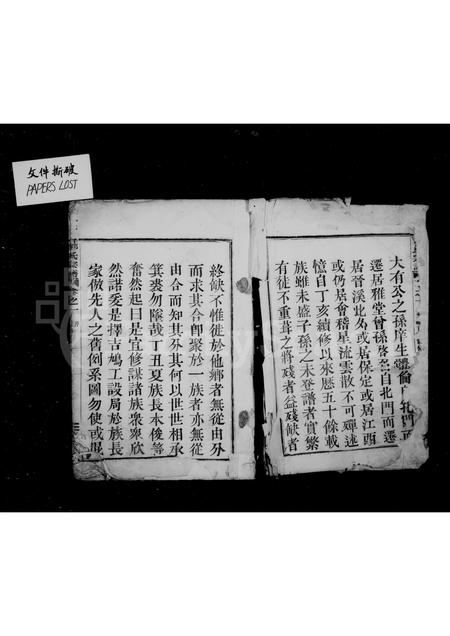 文件撕破
PAPERS LOST
大有公之孫庠生體倫自北門而
遷居雅堂曾孫啓登自北門而遷
居晉溪此外或居保定或居江西
或仍居會稽星流雲散不可殫述
憶自丁亥續修以來歷五十餘載
族雖未盛子孫之未登譜者實繁
有徒不重葺之將殘者益殘缺者
終缺不惟徙於他鄉者無從由分
而求其合卽聚於一族者亦無從
由合而知其分其何以世世相承
箕裘勿墜哉丁丑夏族長本俊等
奮然起曰是宜修謀諸族衆衆欣
然諾爰是擇吉鳩工設局於族長
家倣先人之舊例系圖勿使或混